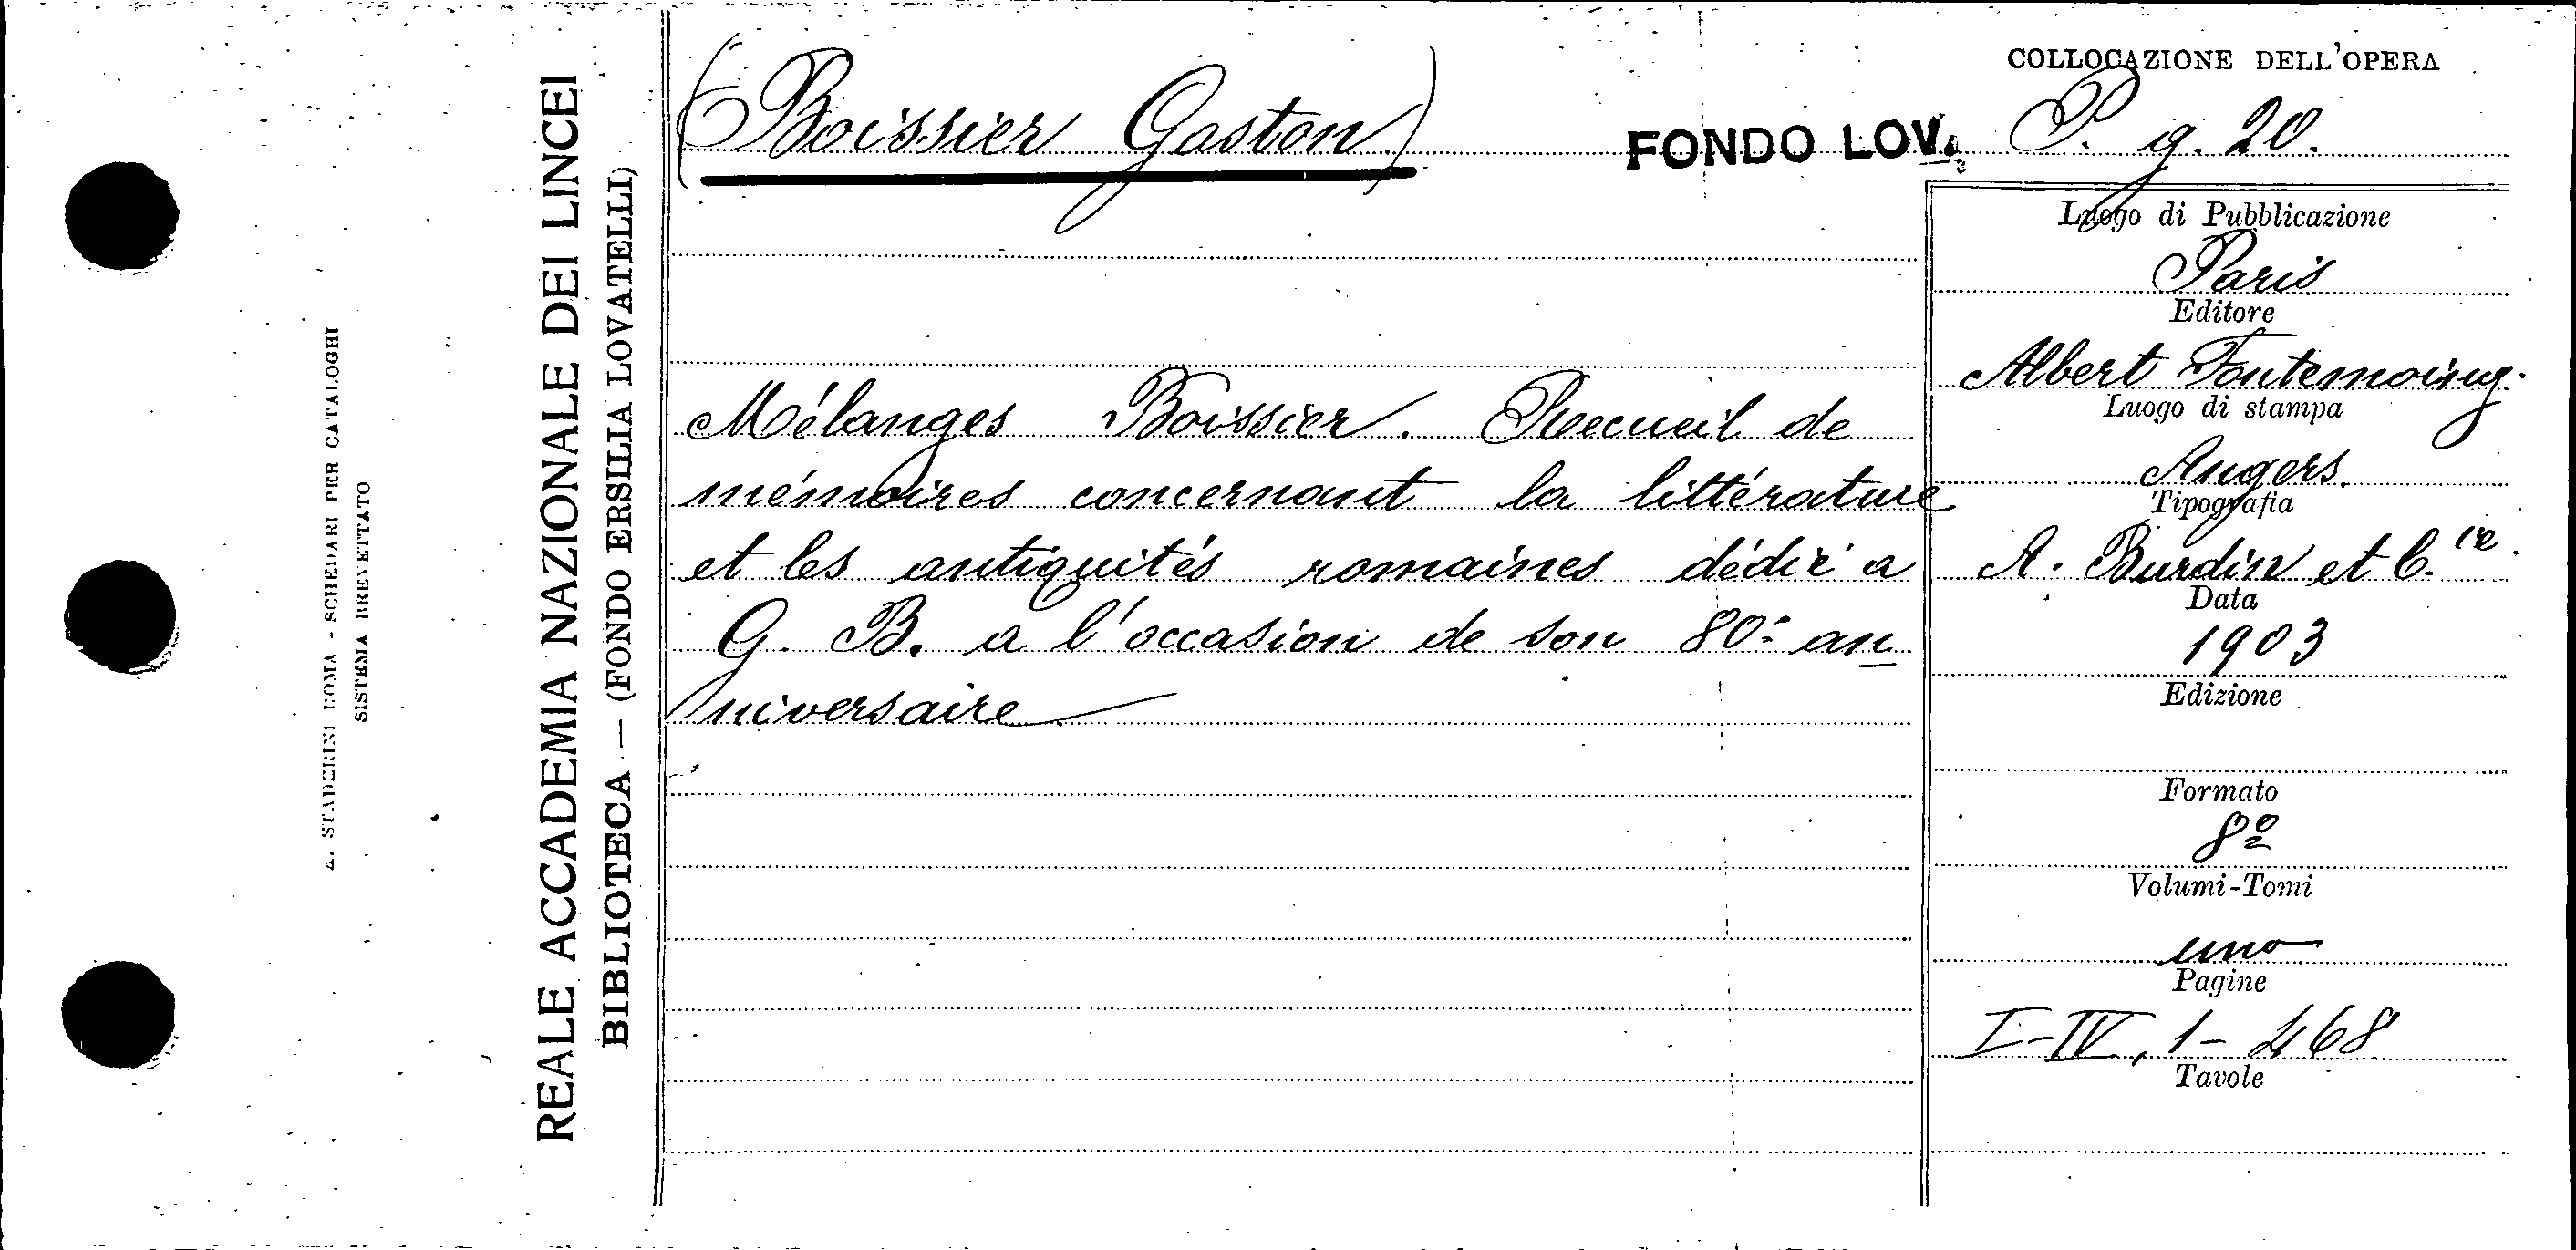 A. STADERINI ROMA - SCHEDARI PER CATALOGHI
SISTEMA BREVETTATO
REALE ACCADEMIA NAZIONALE DEI LINCEI
BIBLIOTECA — (FONDO ERSILIA LOVATELLI)
(Boissier Gaston)
FONDO LOV.
COLLOCAZIONE DELL'OPERA
P. g. 20.
Mélanges Boissier. Recueil de
mémoires concernant la littérature
et les antiquités romaines dédié a
G. B. a l'occasion de son 80º an
niversaire
Luogo di Pubblicazione
Paris
Editore
Albert Fontemoing.
Luogo di stampa
Angers.
Tipografia
A. Burdin et C.ie.
Data
1903
Edizione
Formato
8º
Volumi-Tomi
uno
Pagine
I-IV, 1-468
Tavole